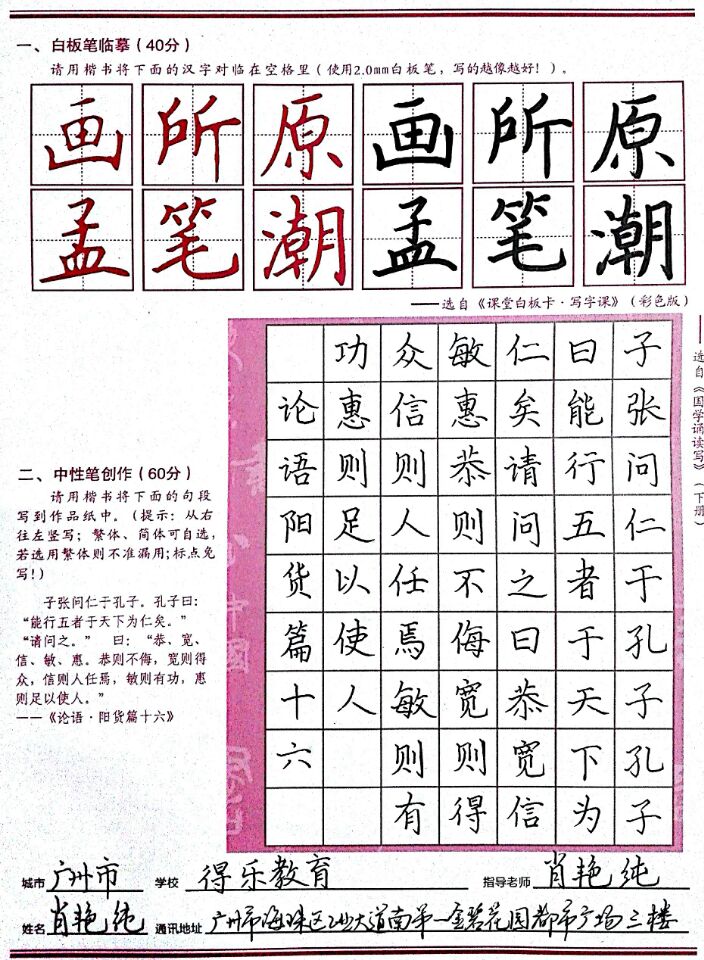 一、白板笔临摹（40分）
请用楷书将下面的汉字对临在空格里（使用2.0mm白板笔，写的越像越好！）。
画所原画所原
孟笔潮孟笔潮
——选自《课堂白板卡·写字课》（彩色版）
二、中性笔创作（60分）
请用楷书将下面的句段
写到作品纸中。（提示：从右
往左竖写；繁体、简体可自选，
若选用繁体则不准漏用；标点免
写！）
子张问仁于孔子。孔子曰：
“能行五者于天下为仁矣。”
“请问之。” 曰：“恭、宽、
信、敏、惠。恭则不侮，宽则得
众，信则人任焉，敏则有功，惠
则足以使人。”
——《论语·阳货篇十六》
子张问仁于孔子孔子
曰能行五者于天下为
仁矣请问之曰恭宽信
敏惠恭则不侮宽则得
众信则人任焉敏则有
功惠则足以使人
论语阳货篇十六
——选自《国学诵读写》（下册）
城市 广州市 学校 得乐教育 指导老师 肖艳纯
姓名 肖艳纯 通讯地址 广州市海珠区工业大道南第一金碧花园都市广场三楼